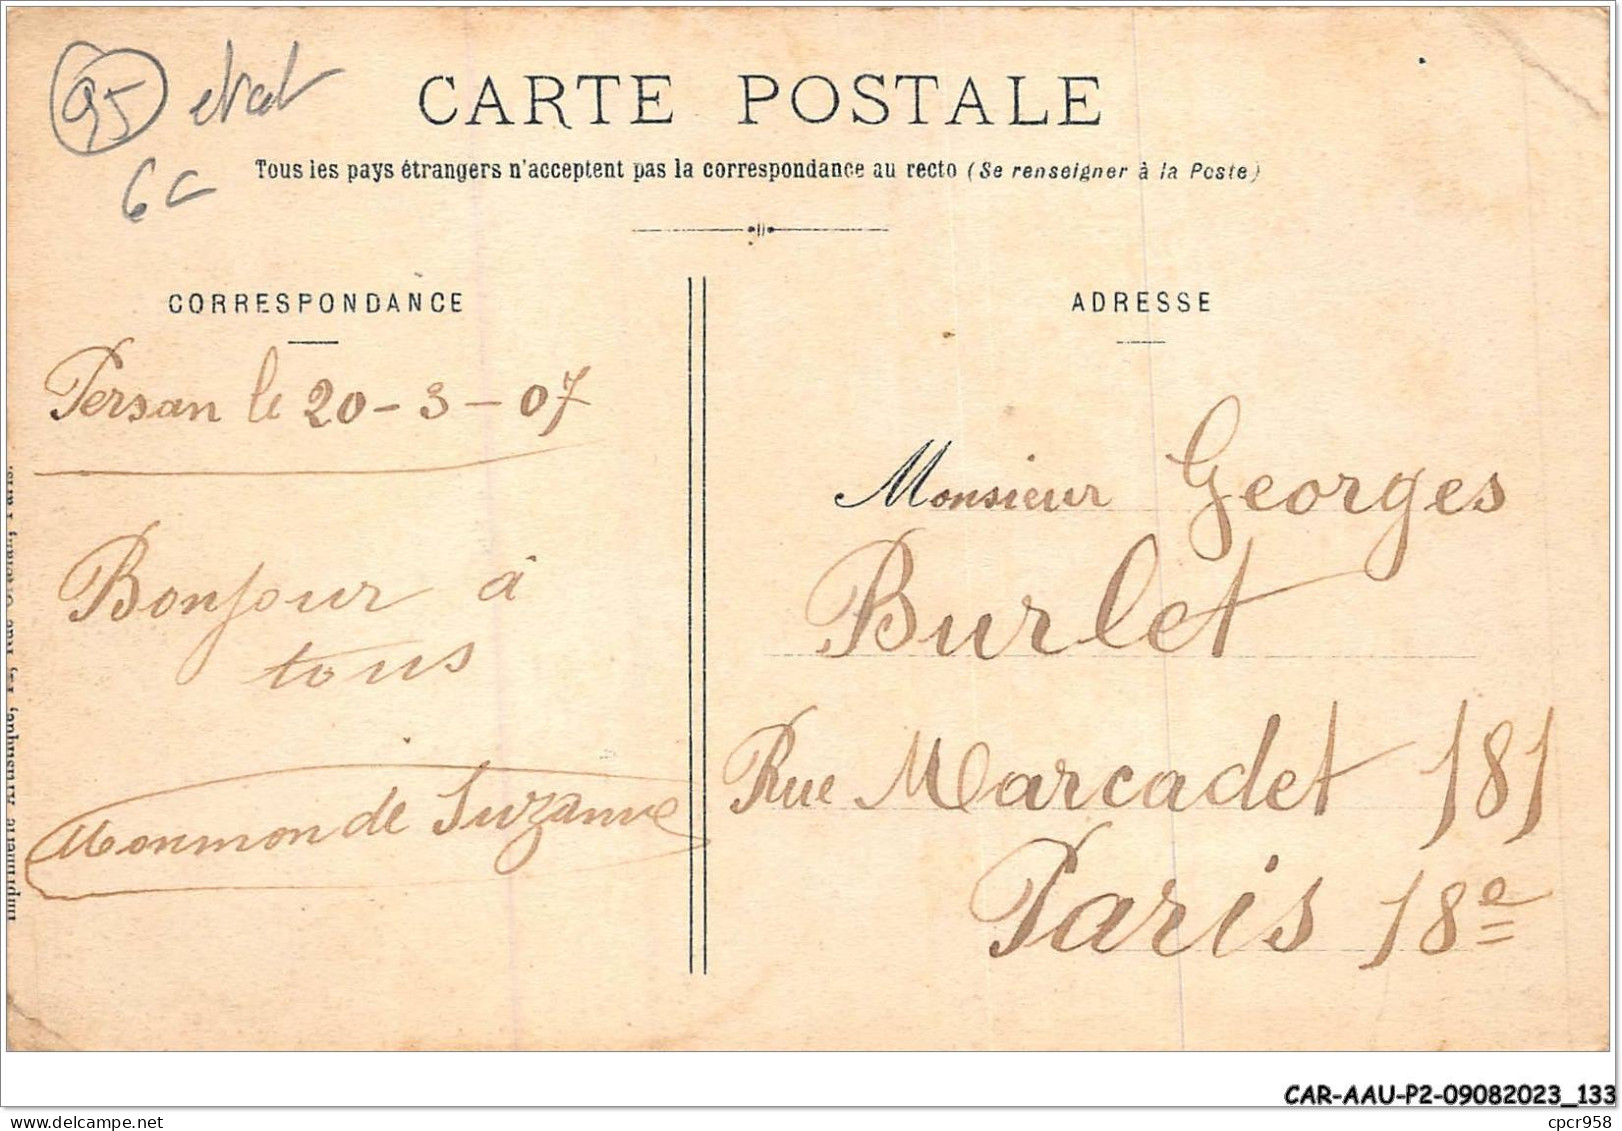 95 etat
6c
CARTE POSTALE
Tous les pays étrangers n'acceptent pas la correspondance au recto (Se renseigner à la Poste)
CORRESPONDANCE
Persan le 20-3-07
Bonjour à
tous
Monmon de Suzanne
ADRESSE
Monsieur Georges
Burlet
Rue Marcadet 181
Paris 18e
Imprimerie Artistique, 12, Rue
Paris.
CAR-AAU-P2-09082023_133
cpcr958